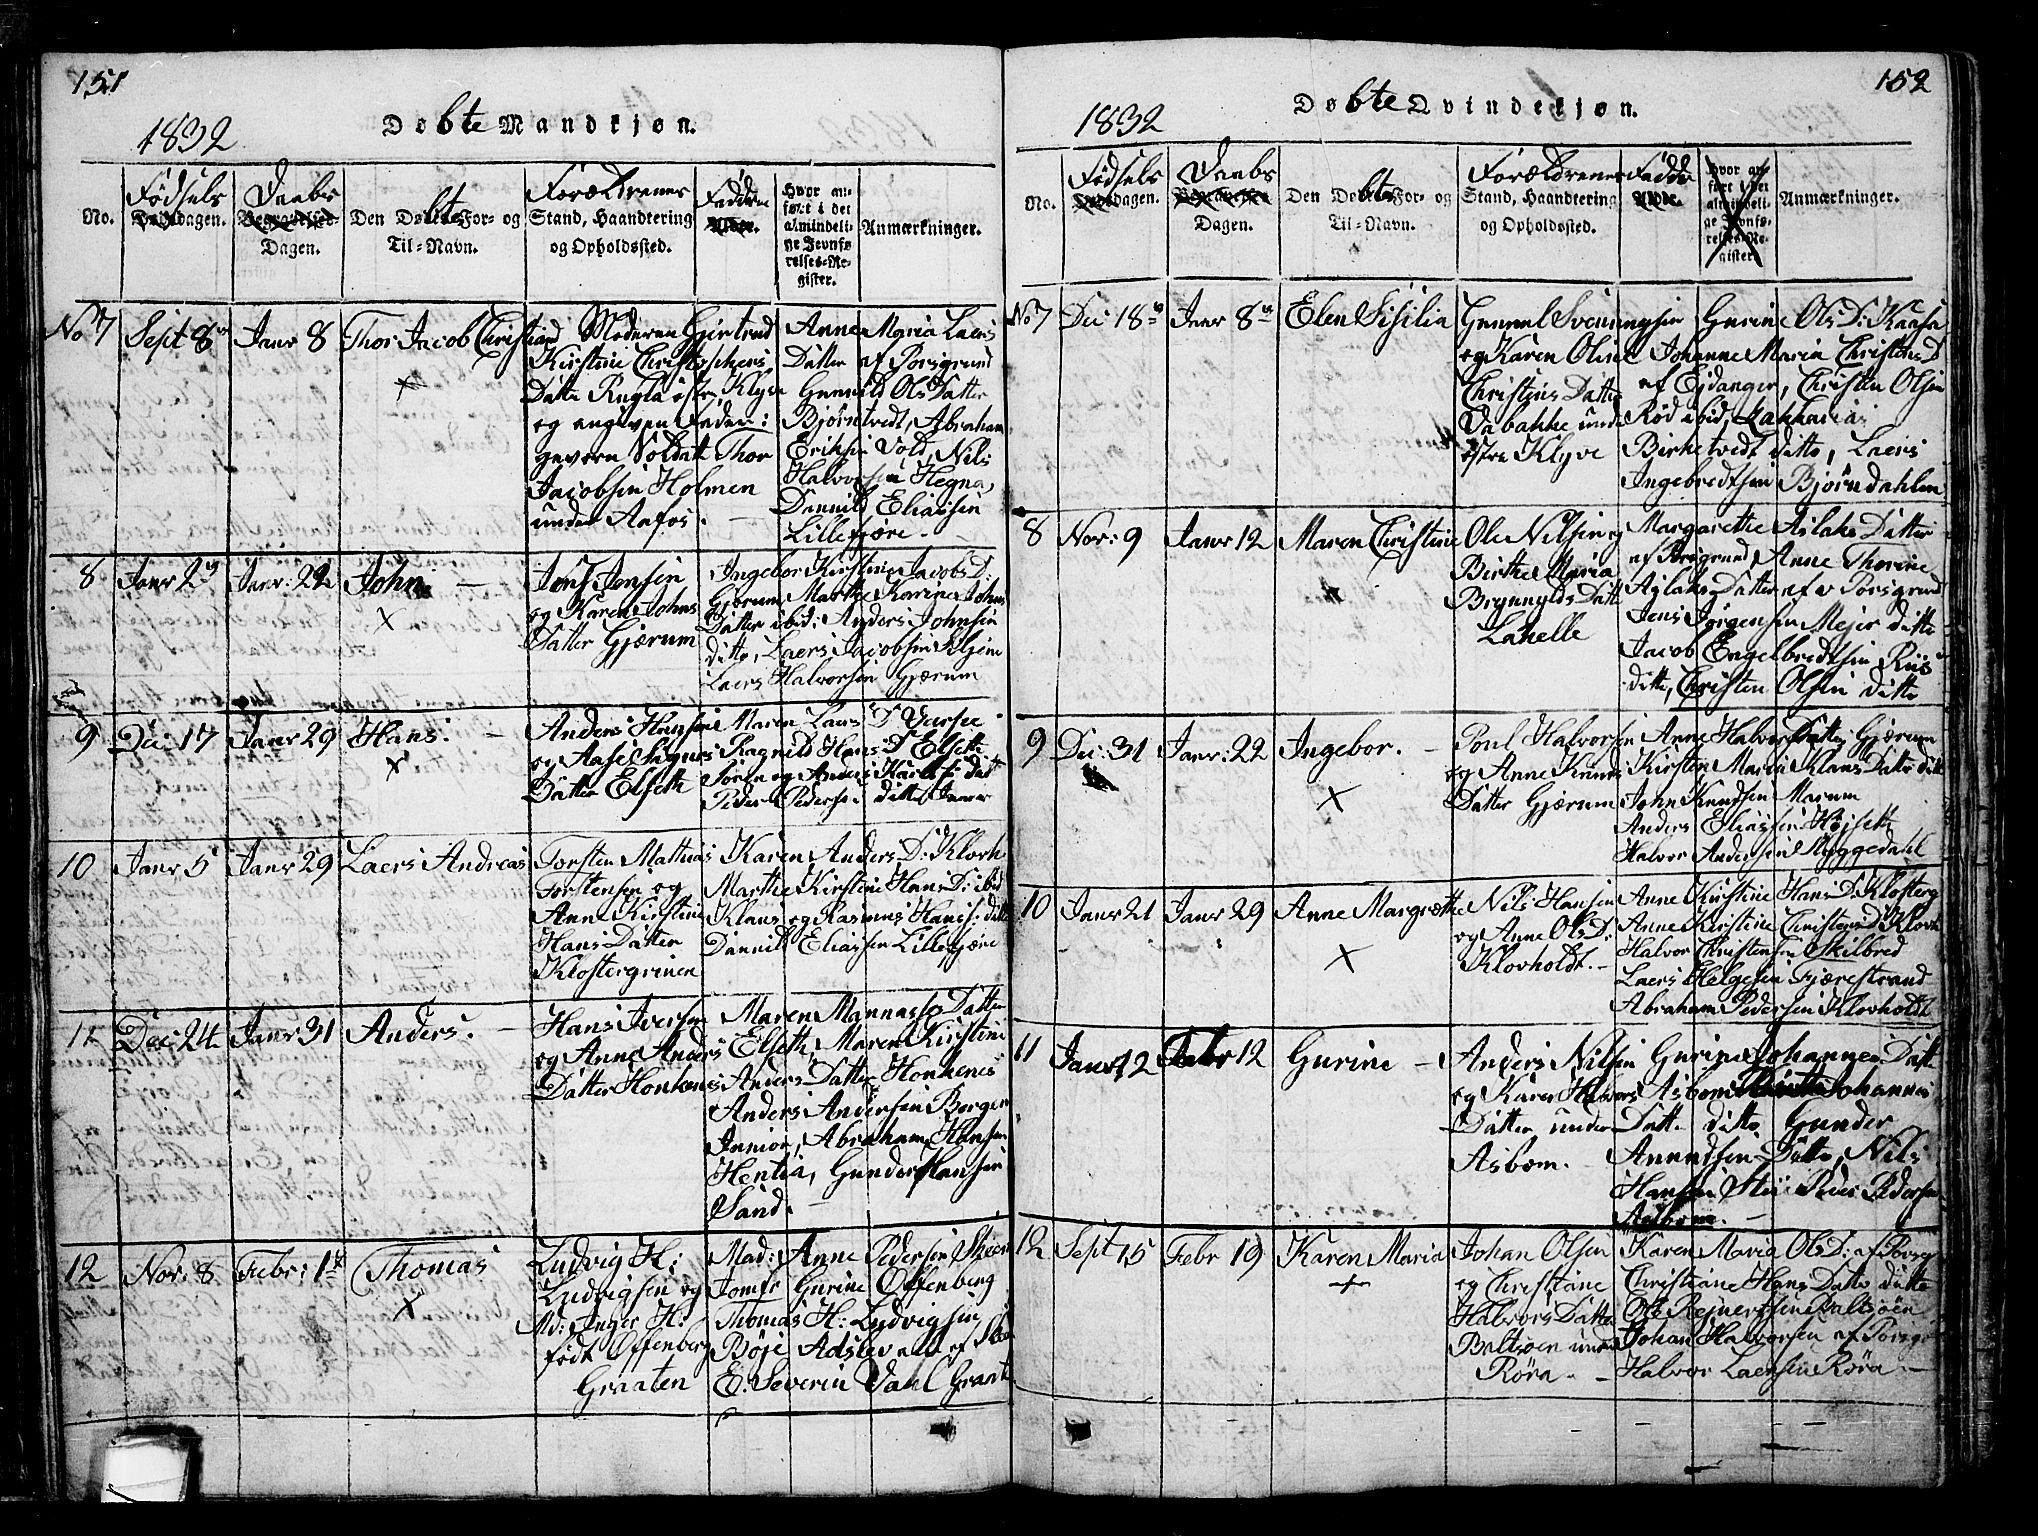 151
1832
Døbte Mandkjøn.
No.
Fødsels
dagen.
Daabs
Dagen.
Den Døbtes For- og
Til-Navn.
Forældrenes
Stand, Haandtering
og Opholdssted.
Faddere
Alder.
Hvor an-
ført i det
almindeli-
ge Jevnfø-
relses-Re-
gister.
Anmærkninger.
No 7
Sept 8de
Janr 8
Thor Jacob Christian
Moderen Gjertrud
Kirstine Christophers
Datter Rugla østre Klyve
og angiven Fader:
gevorn Soldatt Thor
Jacobsen Holmen
under Aafos.
Anne Maria Laers
Datter af Porsgrund
Gunnild Ols Datter
Bjørntvedt, Abraham
Eriksen Vold, Nils
Halvorsen Hegna,
Danniel Eliassen
Lillegjøre.
8
Janr 2den
Janr: 22
John.
Jens Jensen
og Karen Johns
Datter Gjærum
Ingebor Kirstine Jacobs D:
Gjærum, Marthe Karine Johns
Datter ibid: Anders Johnsen
ditto, Laers Jacobsen Siljem
Laers Halvorsen Gjærum
9
Dec: 17
Janr 29
Hans.
Anders Hansen
og Aase Aagnes
Datter Elseth
Maren Laers D
Ragnild Hans D Elseth
Søren og Anders ditt
Peder Pedersen ditto
10
Janr 5
Janr 29
Laers Andreas
Torsten Mathias
Torstensen og
Anne Kirstine
Hans Datter
Klostergrinen
Karen Anders D: Klovh.
Marthe Kirstine Hans D: ibid
Klaus og Rasmus Hans s: ditto
Danniel Eliassen Lillegjøre
11
Dec: 24
Janr 31
Anders.
Hans Iversen
og Anne Anders
Datter Honkenes
Maren Mannasse Datter
Elseth, Maren Kirstine
Anders Datter Honkenes
Anders Andersen Borgen
Junior, Abraham Hansen
Hentia, Gunder Hansen
Sand.
12
Nov: 8
Febr: 1ste
Thomas
Ludvig H:
Ludvigsen og
Md: Inger H:
født Offenberg
Graaten
Mad: Anne Pedersen Skeen
Jomfr Gurine Offenberg
Thomas H: Ludvigsen
Bøje Adslev alle af Skeen
E. Severin Dahl Graaten
152
1832
Døbte Qvindekjøn.
No.
Fødsels
dagen.
Daabs
Dagen.
Den Døbtes For- og
Til-Navn.
Forældrenes
Stand, Haandtering
og Opholdssted.
Fadder
Alder.
Hvor an-
ført i det
almindeli-
ge Jevnfø-
relses-Re-
gister.
Anmærkninger.
No 7
Dec 18de
Janr 8de
Elen Sisilia
Gunnul Svennugsen
og Karen Oline
Christens Datter
Dabakke under
østre Klyve
Gurine Ols D: Kaasa
Johanne Maria Christens D
af Ejdanger, Christen Olsen
Rød ibid, Zakkarias
Birketvedt ditto, Laers
Ingebredtsen Bjørndahlen
8
Nov: 9
Janr 12
Maren Christine
Ole Nilsen og
Birthe Maria
Brynnylds Datter
Lahelle
Margarethe Aslaks Datter
af Porsgrund, Anne Thorine
Aslaks Datter af Porsgrund
Jens Jørgensen Mejer ditto
Jacob Engelbredtsen Riis
ditto, Christen Olsen ditto
9
Dec: 31
Janr: 22
Ingebor.
Poul Halvorsen
og Anne Knuds
Datter Gjærum
Anne Halvors Datter Gjærum
Kirsten Maria Klaus Datter ditto
John Knudsen Marum
Anders Eliassen Højseth
Halvor Andersen Myggedahl
10
Janr 21
Janr 29
Anne Margrethe
Nils Hansen
og Anne Ols D:
Klovholdt.
Anne Kirstine Hans D: Klosterg
Anne Kirstine Christens D Klovh
Halvor Christensen Skilbred
Laers Helgesen Fjærestrand
Abraham Pedersen Klovholdt
11
Janr 12
Febr 12
Gurine
Anders Nilsen
og Karen Halvors
Datter under
Asbom.
Gurine Johannes Datter
Asbom Birthe Johannes
Datter ditto, Gunder
Anundsen Ditto, Nils
Hansen Peder Pedersen
Asbom.
12
Sept 15
Febr 19
Karen Maria
Johan Olsen
og Christiane
Halvors Datter
Baltsøen under
Røra.
Karen Maria Ols D: af Porsg
Christiane Hans Datter ditto
Ole Rejnertsen Baltsøen
Johan Halvorsen af Porsgr
Halvor Laersen Røra